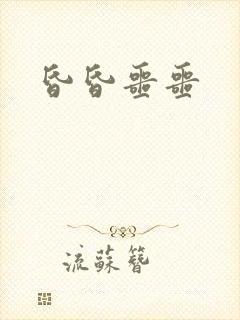 昏昏噩噩
流蘇簪